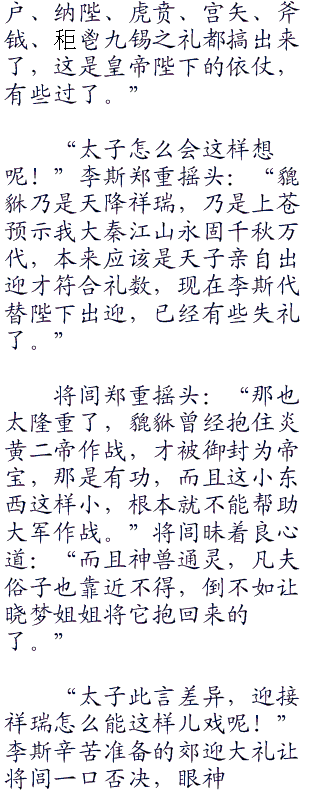 户、纳陛、虎贲、宫矢、斧
钺、秬鬯九锡之礼都搞出来
了，这是皇帝陛下的依仗，
有些过了。”
“太子怎么会这样想
呢！”李斯郑重摇头：“貔
貅乃是天降祥瑞，乃是上苍
预示我大秦江山永固千秋万
代，本来应该是天子亲自出
迎才符合礼数，现在李斯代
替陛下出迎，已经有些失礼
了。”
将闾郑重摇头：“那也
太隆重了，貔貅曾经抱住炎
黄二帝作战，才被御封为帝
宝，那是有功，而且这小东
西这样小，根本就不能帮助
大军作战。”将闾昧着良心
道：“而且神兽通灵，凡夫
俗子也靠近不得，倒不如让
晓梦姐姐将它抱回来的
了。”
“太子此言差异，迎接
祥瑞怎么能这样儿戏呢！”
李斯辛苦准备的郊迎大礼让
将闾一口否决，眼神